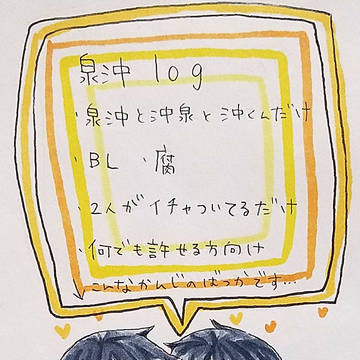 泉沖 log
・泉沖と沖泉と沖くんだけ
・BL ・腐
・2人がイチャついてるだけ
・何でも許せる方向け
↓こんなかんじのばっかです…